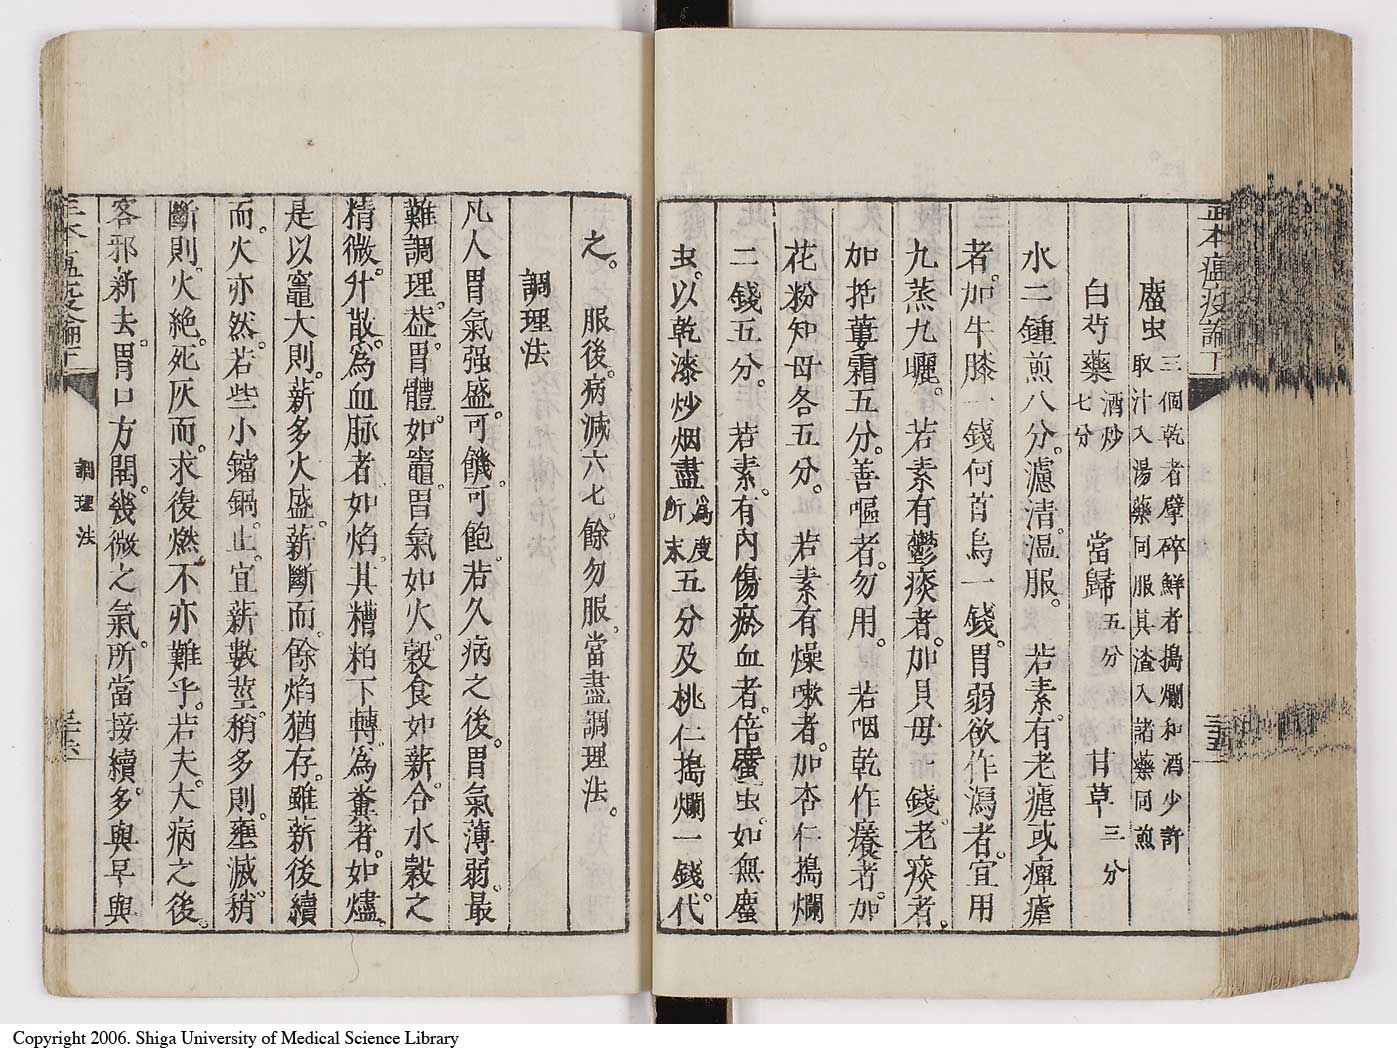 正本瘟疫論下
䗪虫 三個乾者擘碎鮮者搗爛和酒少許
取汁入湯藥同服其渣入諸藥同煎
白芍藥 酒炒七分 當歸 五分 甘草 三分
水二鍾煎八分。濾清。溫服。 若素。有老瘧或癉瘧
者。加牛膝一錢何首。烏一錢。胃弱欲作瀉者。宜用
九蒸九曬。若素有鬱痰者。加貝母一錢。老痰者。
加括蔞霜五分。善嘔者。勿用。 若咽乾作癢者。加
花粉知母各五分。 若素有燥嗽者。加杏仁搗爛
二錢五分。 若素。有內傷瘀血者。倍䗪虫。如無䗪
虫。以乾漆炒烟盡 為度研末 五分及桃仁搗爛一錢。代
三十五
之。 服後。病減六七。餘勿服。當盡調理法。
調理法
凡人胃氣强盛。可饑可飽。若久病之後。胃氣薄弱。最
難調理。葢。胃體。如竈。胃氣如火。穀食如薪。合水穀之
精微。升散。為血脉者。如焰。其糟粕下轉。為糞者。如燼。
是以竈大則。薪多火盛。薪斷而。餘焰猶存。雖薪後續
而。火亦然。若些小鐺鍋。止。宜薪數莖。稍多則。壅滅。稍
斷則。火絶。死灰而。求復燃。不亦難乎。若夫。大病之後。
客邪新去。胃口方開。幾微之氣。所當接續。多與早與
調理法
三十六
Copyright 2006. Shiga University of Medical Science Library